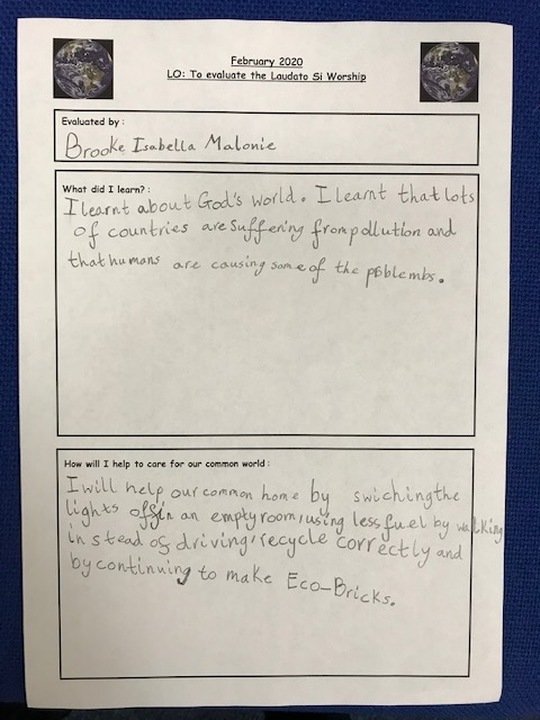 February 2020
LO: To evaluate the Laudato Si Worship
Evaluated by :
Brooke Isabella Malonie
What did I learn? :
I learnt about God's world. I learnt that lots
of countries are suffering from pollution and
that humans are causing some of the pbblembs.
How will I help to care for our common world :
I will help our common home by swiching the
lights off in an empty room, using less fuel by walking
instead of driving, recycle correctly and
by continuing to make Eco-Bricks.